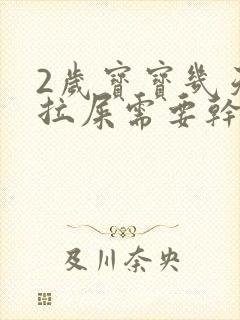 2歲寶寶幾天
拉屎需要幹
及川奈央